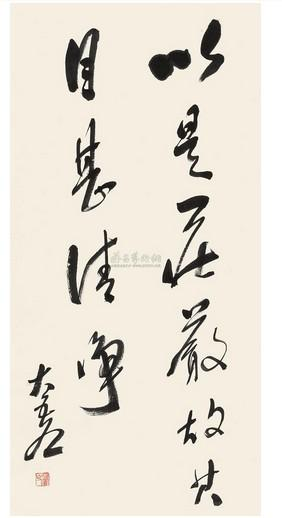 以是莊嚴故其
目甚清淨
大壑